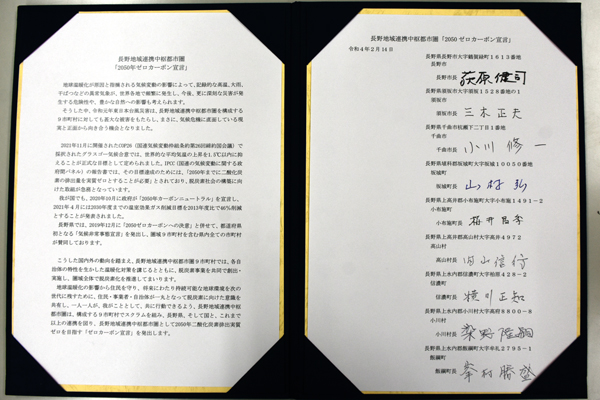 長野地域連携中枢都市圏
「2050年ゼロカーボン宣言」
地球温暖化が原因と指摘される気候変動の影響によって、記録的な高温、大雨、
干ばつなどの異常気象が、世界各地で頻繁に発生し、今後、更に深刻な災害が発
生する危険性や、豊かな自然への影響も考えられます。
そうした中、令和元年東日本台風災害は、長野地域連携中枢都市圏を構成する
９市町村に対しても甚大な被害をもたらし、まさに、気候危機に直面している現
実と正面から向き合う機会となりました。
2021年11月に開催されたCOP26（国連気候変動枠組条約第26回締約国会議）で
採択されたグラスゴー気候合意では、世界的な平均気温の上昇を1.5℃以内に抑
えることが正式な目標として定められました。IPCC（国連の気候変動に関する政
府間パネル）の報告書では、その目標達成のためには、「2050年までに二酸化炭
素の排出量を実質ゼロとすることが必要」とされており、脱炭素社会の構築に向
けた取組が急務となっています。
我が国でも、2020年10月に政府が「2050年カーボンニュートラル」を宣言し、
2021年４月には2030年度までの温室効果ガス削減目標を2013年度比で46%削減
とすることが発表されました。
長野県では、2019年12月に「2050ゼロカーボンへの決意」と併せて、都道府県
初となる「気候非常事態宣言」を発出し、圏域９市町村を含む県内全ての市町村
が賛同しております。
こうした国内外の動向を踏まえ、長野地域連携中枢都市圏９市町村では、各自
治体の特性を生かした温暖化対策を講じるとともに、脱炭素事業を共同で創出・
実施し、圏域全体で脱炭素化を推進してまいります。
地球温暖化の影響から住民を守り、将来にわたり持続可能な地球環境を次の
世代に残すために、住民・事業者・自治体が一丸となって脱炭素に向けた意識を
共有し、一人一人が、我がこととして、共に行動できるよう、長野地域連携中枢
都市圏は、構成する９市町村でスクラムを組み、長野県、そして国と、これまで
以上の連携を図り、長野地域連携中枢都市圏として2050年二酸化炭素排出実質
ゼロを目指す「ゼロカーボン宣言」を発出します。
長野地域連携中枢都市圏「2050ゼロカーボン宣言」
令和４年２月14日
長野県長野市大字鶴賀緑町１６１３番地
長野市
長野市長 荻原健司
長野県須坂市大字須坂１５２８番地の１
須坂市
須坂市長 三木正夫
長野県千曲市杭瀬下二丁目１番地
千曲市
千曲市長 小川修一
長野県埴科郡坂城町大字坂城１００５０番地
坂城町
坂城町長 山村弘
長野県上高井郡小布施町大字小布施１４９１－２
小布施町
小布施町長 桜井昌季
長野県上高井郡高山村大字高井４９７２
高山村
高山村長 内山信行
長野県上水内郡信濃町大字柏原４２８－２
信濃町
信濃町長 横川正知
長野県上水内郡小川村大字高府８８００－８
小川村
小川村長 染野隆嗣
長野県上水内郡飯綱町大字牟礼２７９５－１
飯綱町
飯綱町長 峯村勝盛